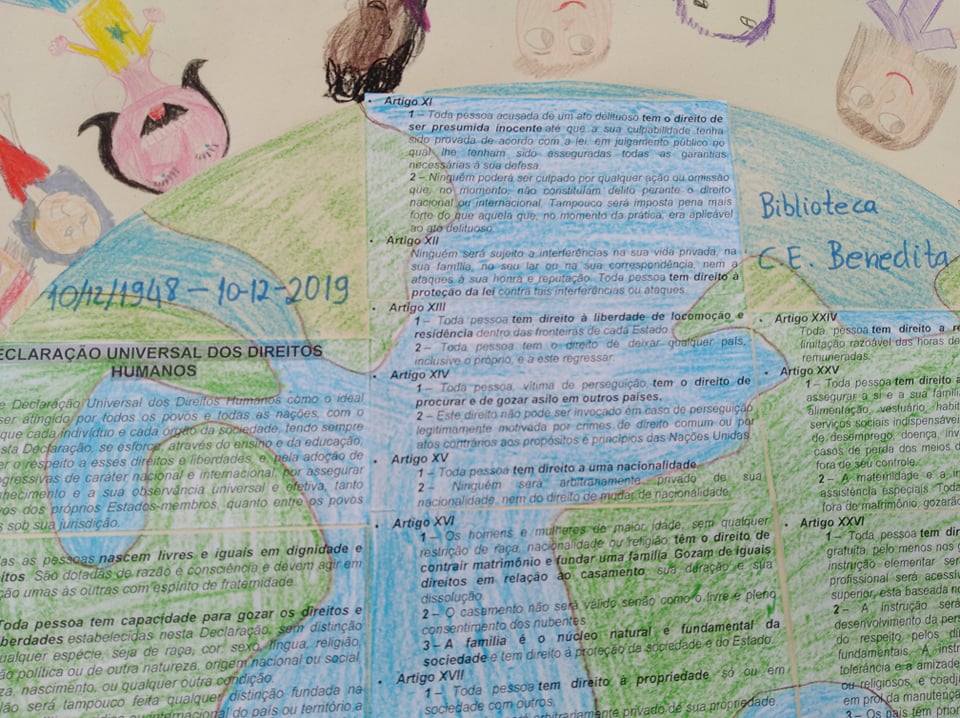 10/12/1948 – 10-12-2019
ECLARAÇÃO UNIVERSAL DOS DIREITOS
HUMANOS
e Declaração Universal dos Direitos Humanos como o ideal
ser atingido por todos os povos e todas as nações, com o
que cada indivíduo e cada órgão da sociedade, tendo sempre
sta Declaração, se esforce, através do ensino e da educação,
er o respeito a esses direitos e liberdades, e, pela adoção de
gressivas de caráter nacional e internacional, por assegurar
hecimento e a sua observância universal e efetiva, tanto
vos dos próprios Estados-membros, quanto entre os povos
s sob sua jurisdição.
as as pessoas nascem livres e iguais em dignidade e
itos. São dotadas de razão e consciência e devem agir em
ção umas às outras com espírito de fraternidade.
Toda pessoa tem capacidade para gozar os direitos e
berdades estabelecidas nesta Declaração, sem distinção
ualquer espécie, seja de raça, cor, sexo, língua, religião,
ão política ou de outra natureza, origem nacional ou social,
za, nascimento, ou qualquer outra condição.
lão será tampouco feita qualquer distinção fundada na
internacional do país ou território a
• Artigo XI
1 – Toda pessoa acusada de um ato delituoso tem o direito de
ser presumida inocente até que a sua culpabilidade tenha
sido provada de acordo com a lei, em julgamento público no
qual lhe tenham sido asseguradas todas as garantias
necessárias à sua defesa.
2 – Ninguém poderá ser culpado por qualquer ação ou omissão
que, no momento, não constituíam delito perante o direito
nacional ou internacional. Tampouco será imposta pena mais
forte do que aquela que, no momento da prática, era aplicável
ao ato delituoso.
• Artigo XII
Ninguém será sujeito a interferências na sua vida privada, na
sua família, no seu lar ou na sua correspondência, nem a
ataques à sua honra e reputação. Toda pessoa tem direito à
proteção da lei contra tais interferências ou ataques.
• Artigo XIII
1 – Toda pessoa tem direito à liberdade de locomoção e
residência dentro das fronteiras de cada Estado.
2 – Toda pessoa tem o direito de deixar qualquer país,
inclusive o próprio, e a este regressar.
• Artigo XIV
1 – Toda pessoa, vítima de perseguição, tem o direito de
procurar e de gozar asilo em outros países.
2 – Este direito não pode ser invocado em caso de perseguição
legitimamente motivada por crimes de direito comum ou por
atos contrários aos propósitos e princípios das Nações Unidas.
• Artigo XV
1 – Toda pessoa tem direito a uma nacionalidade.
2 – Ninguém será arbitrariamente privado de sua
nacionalidade, nem do direito de mudar de nacionalidade.
• Artigo XVI
1 – Os homens e mulheres de maior idade, sem qualquer
restrição de raça, nacionalidade ou religião, têm o direito de
contrair matrimônio e fundar uma família. Gozam de iguais
direitos em relação ao casamento, sua duração e sua
dissolução.
2 – O casamento não será válido senão como o livre e pleno
consentimento dos nubentes.
3 – A família é o núcleo natural e fundamental da
sociedade e tem direito à proteção da sociedade e do Estado.
• Artigo XVII
1 – Toda pessoa tem direito à propriedade, só ou em
sociedade com outros.
arbitrariamente privado de sua propriedade.
Biblioteca
C. E. Benedita
• Artigo XXIV
Toda pessoa tem direito a re
limitação razoável das horas de
remuneradas.
• Artigo XXV
1 – Toda pessoa tem direito a
assegurar a si e a sua famíli
alimentação, vestuário, habit
serviços sociais indispensáve
de desemprego, doença, inv
casos de perda dos meios d
fora de seu controle.
2 – A maternidade e a in
assistência especiais. Toda
fora de matrimônio, gozarão
• Artigo XXVI
1 – Toda pessoa tem dir
gratuita, pelo menos nos g
instrução elementar ser
profissional será acessív
superior, esta baseada no
2 – A instrução será
desenvolvimento da pers
do respeito pelos di
fundamentais. A instr
tolerância e a amizade
ou religiosos, e coadju
em prol da manutença
3 – Os pais têm prior